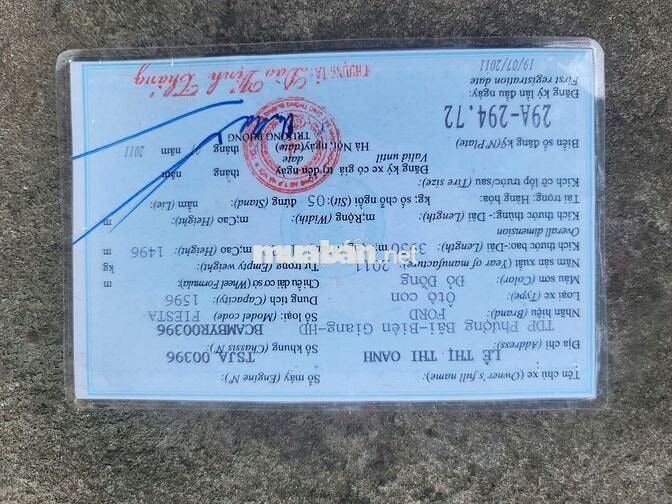 Tên chủ xe (Owner's full name): Số máy (Engine N°):
LÊ THỊ THI OANH TSJA 00396
Địa chỉ (Address): Số khung (Chassis N°):
TDP Phượng Bãi-Biên Giang-HĐ BCAMBYR00396
Nhãn hiệu (Brand): FORD Số loại: (Model code) FIESTA
Loại xe (Type): Ôtô con Dung tích (Capacity): 1596
Màu sơn (Color): Đỏ Đồng Chiều dài cơ sở (Wheel Formula): m
Năm sản xuất (Year of manufacture): 2011 Tự trọng (Empty weight): kg
Kích thước bao: Dài (Length): m;Cao (Height): 1496 m
Overall dimension
Kích thước thùng: Dài (Length): m;Rộng (Width) m;Cao (Height)
Tải trọng: Hàng hóa: kg; Số chỗ ngồi (Sit): 05 đứng (Stand) nằm: (Lie)
Kích cỡ lốp trước/sau: (Tire size):
Biển số đăng ký (N° Plate)
29A-294.72
Đăng ký lần đầu ngày:
First registration date
19/07/2011
Đăng ký xe có giá trị đến ngày tháng năm
Valid until date
Hà Nội, ngày(date) tháng năm 2011
TRƯỞNG PHÒNG
THƯỢNG TÁ: Đào Vịnh Thắng
muaban.net